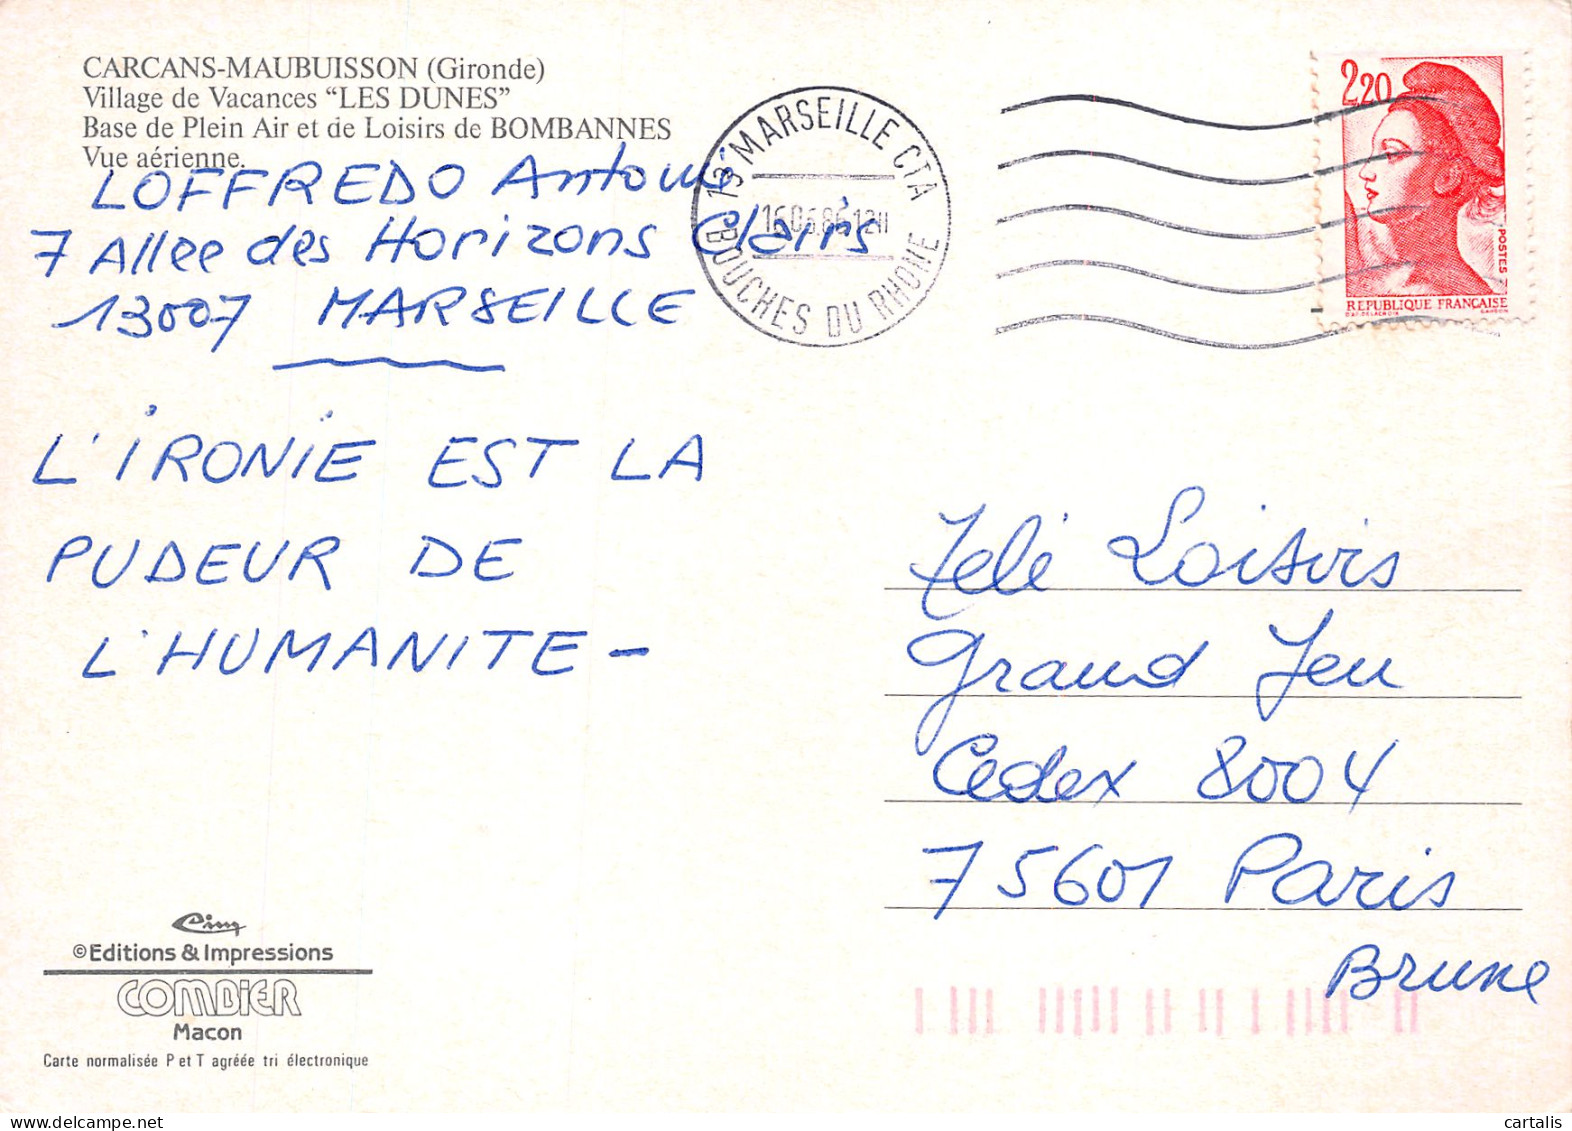 CARCANS-MAUBUISSON (Gironde)
Village de Vacances "LES DUNES"
Base de Plein Air et de Loisirs de BOMBANNES
Vue aérienne.
LOFFREDO Antoine
7 Allee des Horizons Clairs
13007 MARSEILLE
L'IRONIE EST LA
PUDEUR DE
L'HUMANITE -
13 MARSEILLE CTA
BOUCHES DU RHONE
2,20
POSTES
REPUBLIQUE FRANÇAISE
Télé Loisirs
Grand Jeu
Cedex 8004
75601 Paris
Brune
Cim
© Editions & Impressions
COMBIER
Macon
Carte normalisée P et T agréée tri électronique
cartalis